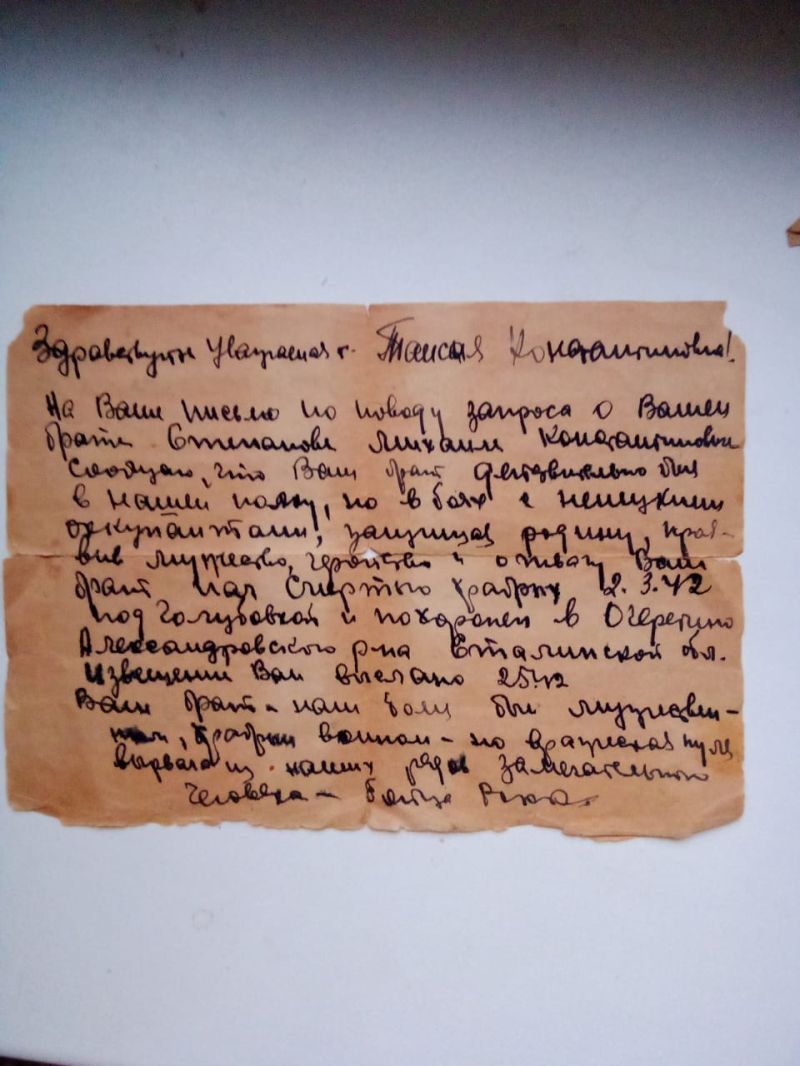 Здравствуйте Уважаемая т. Таисия Константиновна!
На Ваше письмо по поводу запроса о Вашем
брате Степанове Михаиле Константиновиче
сообщаю, что Ваш брат действительно был
в нашем полку, но в боях с немецкими
оккупантами, защищая родину, прояв-
вив мужество, геройство и отвагу Ваш
брат пал смертью храбрых 2.3.42
под Голубовкой и похоронен в Очеретино
Александровского р-на Сталинской обл.
Извещение Вам выслано
Ваш брат - наш боец был мужествен-
ным, храбрым воином - но вражеская пуля
вырвала из наших рядов замечательного
человека - бойца